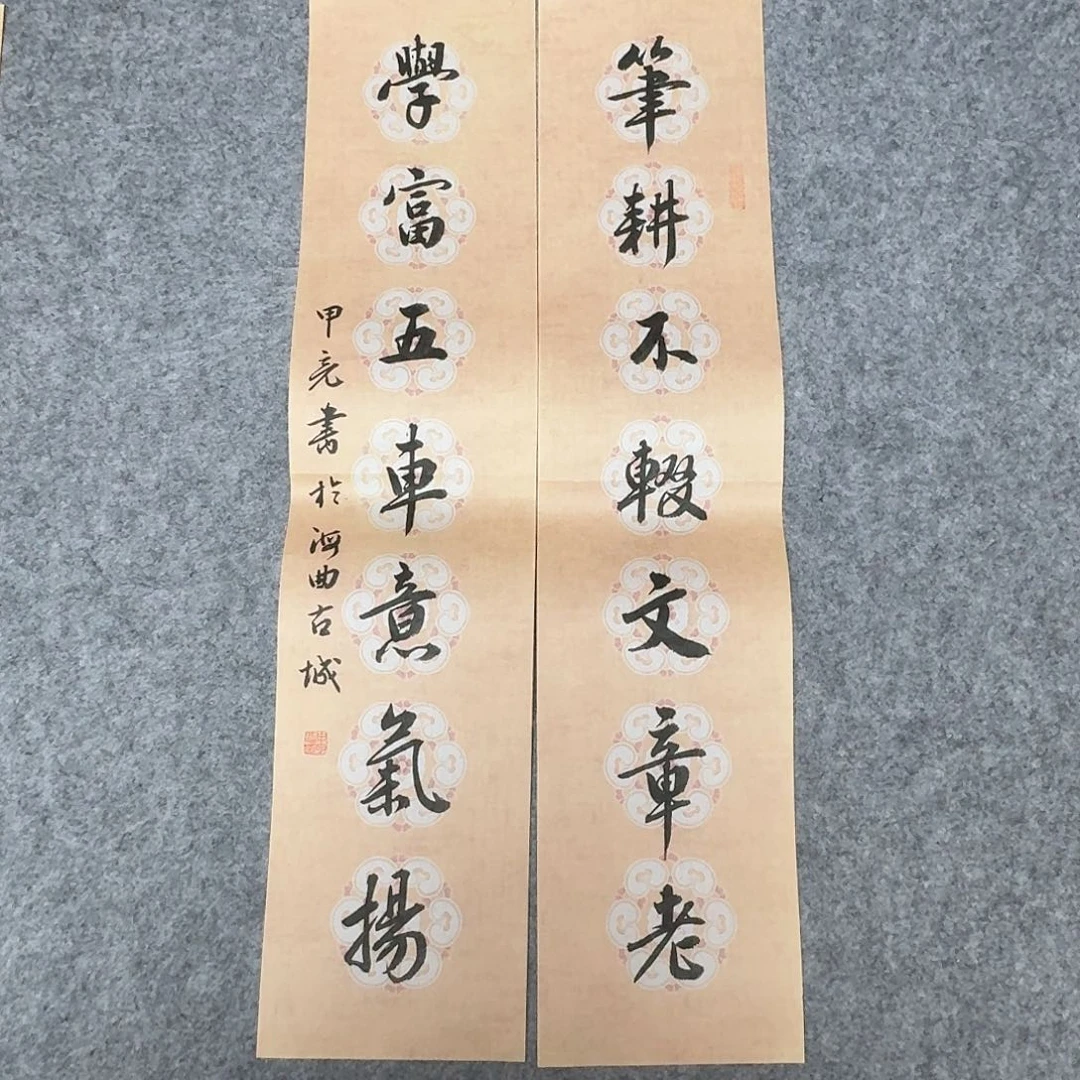 筆耕不輟文章老
學富五車意氣揚
甲亮書於海曲古城